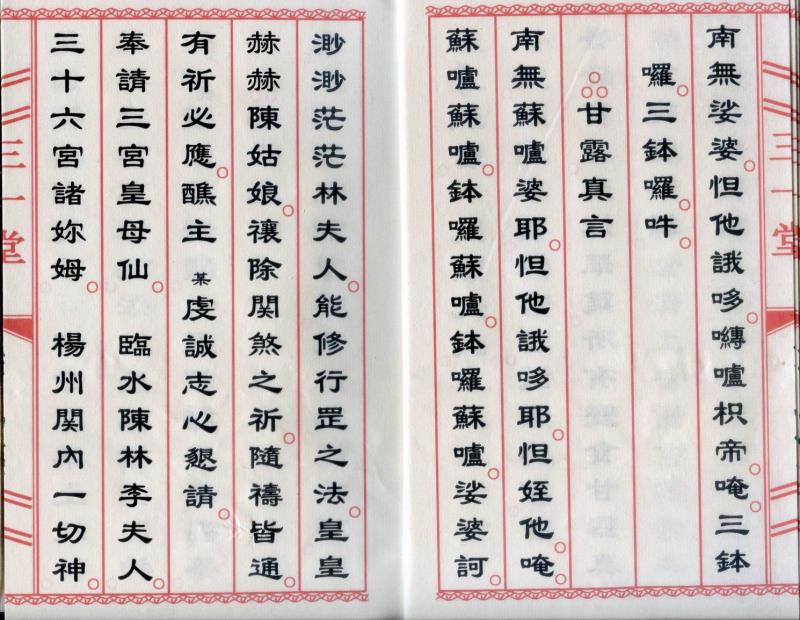 三一堂
南無娑婆。怛他誐哆嚩嚧枳帝。唵。三鉢
囉。三鉢囉。吽。
甘露真言
南無蘇嚧婆耶。怛他誐哆耶。怛姪他唵。
蘇嚧蘇嚧。鉢囉蘇嚧。鉢囉蘇嚧。娑婆訶
渺渺茫茫林夫人。能修行罡之法。皇皇
赫赫陳姑娘。禳除関煞之祈。隨禱皆通。
有祈必應。醮主某虔誠志心懇請。
奉請三宮皇母仙。臨水陳林李夫人。
三十六宮諸妳姆。楊州関內一切神。
三一堂